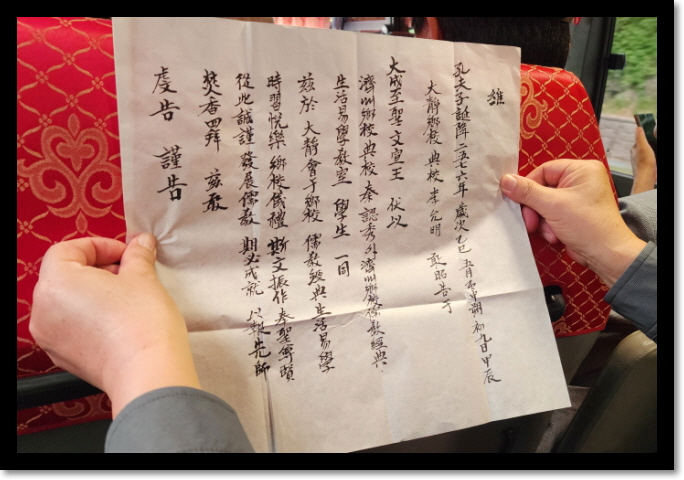 維
孔夫子誕降二五七六年 歲次乙巳 五月 朔 初九日甲辰
大靜鄕校 典校 李允明 敢昭告于
大成至聖文宣王 伏以
濟州鄕校典校 奉 認 秀 外 濟州鄕校儒教經典
生活易學教室 學生 一同
玆於 大靜會于鄕校 儒教經典生活易學
時習悅樂 鄕校儀禮 斯文振作奉聖 賢
從此誠謹 發展儒教 期必成就 以報先師
焚香四拜 玆敢
虔告 謹告